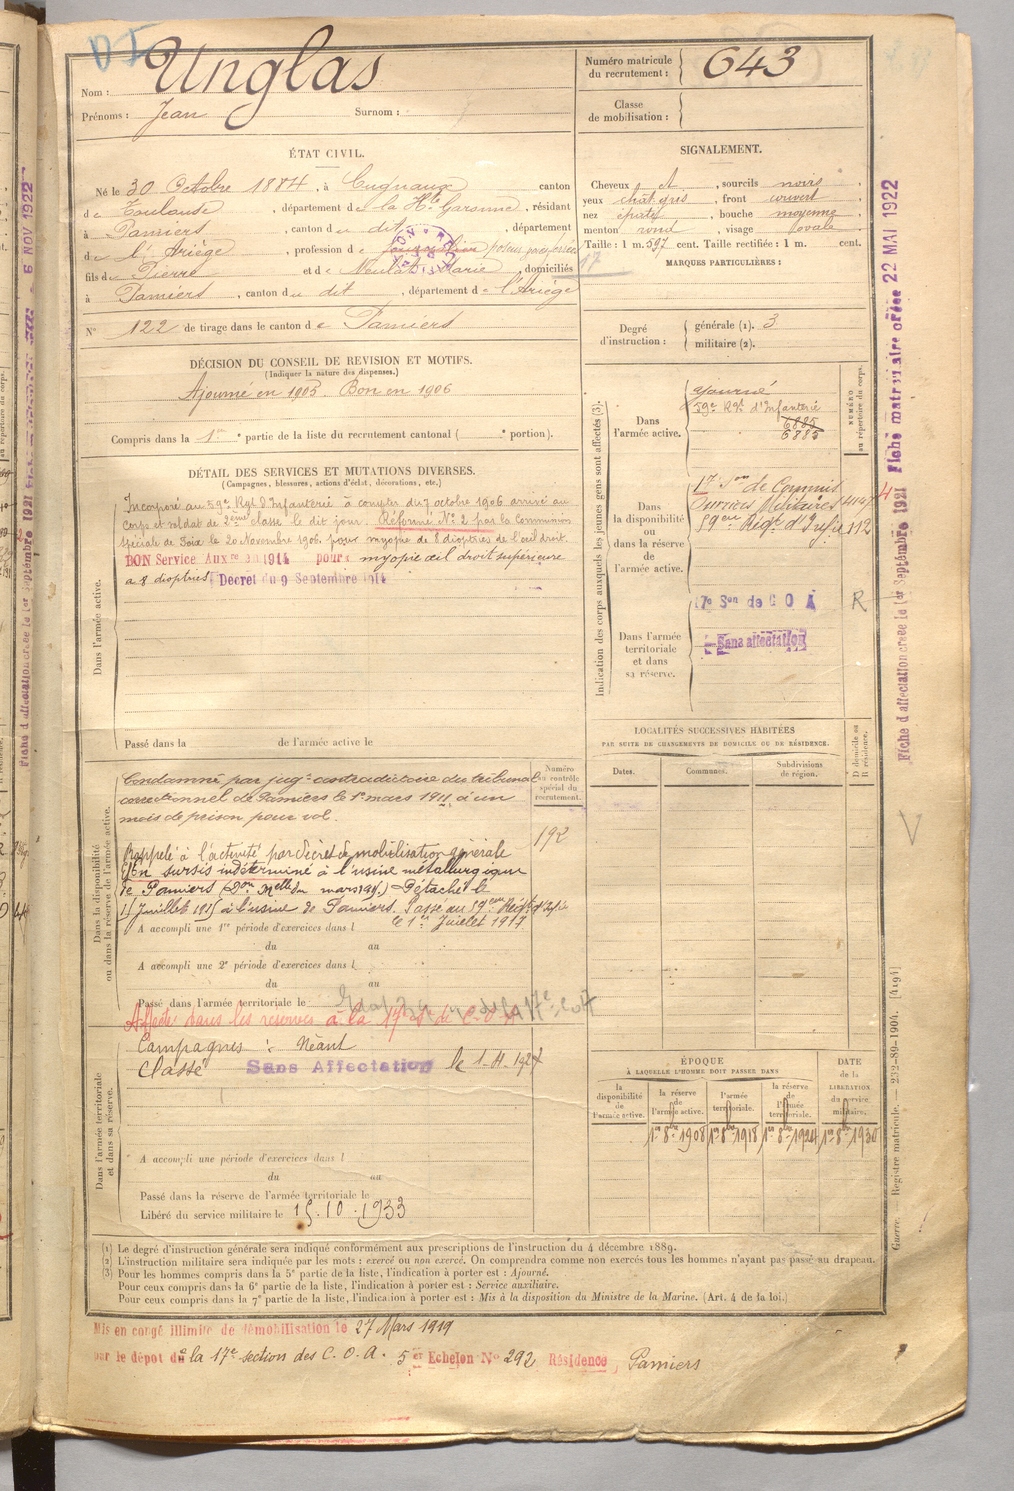 Nom : Unglas
Prénoms : Jean Surnom :
Numéro matricule du recrutement : 643
Classe de mobilisation :
ÉTAT CIVIL.
Né le 30 Octobre 1884, à Cugnaux canton
de Toulouse, département de la Hte Garonne, résidant
à Pamiers, canton du dit, département
de l'Ariège, profession de
fils de Pierre et de Marie, domiciliés
à Pamiers, canton du dit, département de l'Ariège
N° 122 de tirage dans le canton de Pamiers
SIGNALEMENT.
Cheveux, sourcils noirs,
yeux chât gris, front couvert
nez épaté, bouche moyenne
menton rond, visage ovale
Taille : 1 m. 597 cent. Taille rectifiée : 1 m. cent.
MARQUES PARTICULIÈRES :
17
Degré d'instruction : générale (1). 3
militaire (2).
DÉCISION DU CONSEIL DE REVISION ET MOTIFS.
(Indiquer la nature des dispenses.)
Ajourné en 1905. Bon en 1906
Compris dans la 1re partie de la liste du recrutement cantonal ( e portion).
DÉTAIL DES SERVICES ET MUTATIONS DIVERSES.
(Campagnes, blessures, actions d'éclat, décorations, etc.)
Dans l'armée active.
Incorporé au 59e Rgt d'Infanterie à compter du 7 octobre 1906 arrivé au
corps et soldat de 2ème classe le dit jour. Réformé N° 2 par la Commission
spéciale de Foix le 20 Novembre 1906 pour myopie de 8 dioptries de l'œil droit.
BON Service Auxre en 1914 pour myopie œil droit supérieure
à 8 dioptries Décret du 9 Septembre 1914
Passé dans la de l'armée active le
Indication des corps auxquels les jeunes gens sont affectés (3).
NUMÉRO au répertoire du corps.
Dans l'armée active.
ajourné
59e Rgt d'Infanterie
6885
6885
Dans la disponibilité ou dans la réserve de l'armée active.
17 Son de Commis
Ouvriers Militaires
59eme Régt d'Infie 112
17e Son de C O A
R
Dans l'armée territoriale et dans sa réserve.
Sans affectation
LOCALITÉS SUCCESSIVES HABITÉES
PAR SUITE DE CHANGEMENTS DE DOMICILE OU DE RÉSIDENCE.
D domicile ou R résidence.
Dates. Communes. Subdivisions de région.
Numéro au contrôle spécial du recrutement.
192
Dans la disponibilité ou dans la réserve de l'armée active.
Condamné par jugt contradictoire du tribunal
correctionnel de Pamiers le 1er mars 1911 à un
mois de prison pour vol.
Rappelé à l'activité par décret de mobilisation générale
En sursis indéterminé à l'usine métallurgique
de Pamiers Détaché le
15 Juillet 1915 à l'usine de Pamiers. Passé au 59eme Régt d'Infie
le 1er Juillet 1917
A accompli une 1re période d'exercices dans l
du au
A accompli une 2e période d'exercices dans l
du au
Passé dans l'armée territoriale le
Affecté dans les réserves à la 17e Son de C.O.A
Dans l'armée territoriale et dans sa réserve.
Campagnes : Néant
Classé Sans Affectation
A accompli une période d'exercices dans l
du au
Passé dans la réserve de l'armée territoriale le
Libéré du service militaire le 15.10.1933
ÉPOQUE
À LAQUELLE L'HOMME DOIT PASSER DANS
DATE de la LIBÉRATION du service militaire.
la disponibilité de l'armée active.
la réserve de l'armée active.
l'armée territoriale.
la réserve de l'armée territoriale.
1er 8bre 1908 1er 8bre 1918 1er 8bre 1924 1er 8bre 1930
(1) Le degré d'instruction générale sera indiqué conformément aux prescriptions de l'instruction du 4 décembre 1889.
(2) L'instruction militaire sera indiquée par les mots : exercé ou non exercé. On comprendra comme non exercés tous les hommes n'ayant pas passé au drapeau.
(3) Pour les hommes compris dans la 5e partie de la liste, l'indication à porter est : Ajourné.
Pour ceux compris dans la 6e partie de la liste, l'indication à porter est : Service auxiliaire.
Pour ceux compris dans la 7e partie de la liste, l'indication à porter est : Mis à la disposition du Ministre de la Marine. (Art. 4 de la loi.)
Mis en congé illimité de démobilisation le 27 Mars 1919
par le dépot de la 17e section des C.O.A. 5 Echelon N° 292 Résidence, Pamiers
Fiche matriculaire créée 22 MAI 1922
Fiche d'affectation créée le 1er Septembre 1921
Guerre. — Registre matricule. — 232-89-1904. [4194]
6 NOV 1922
Fiche d'affectation créée le 1er Septembre 1921